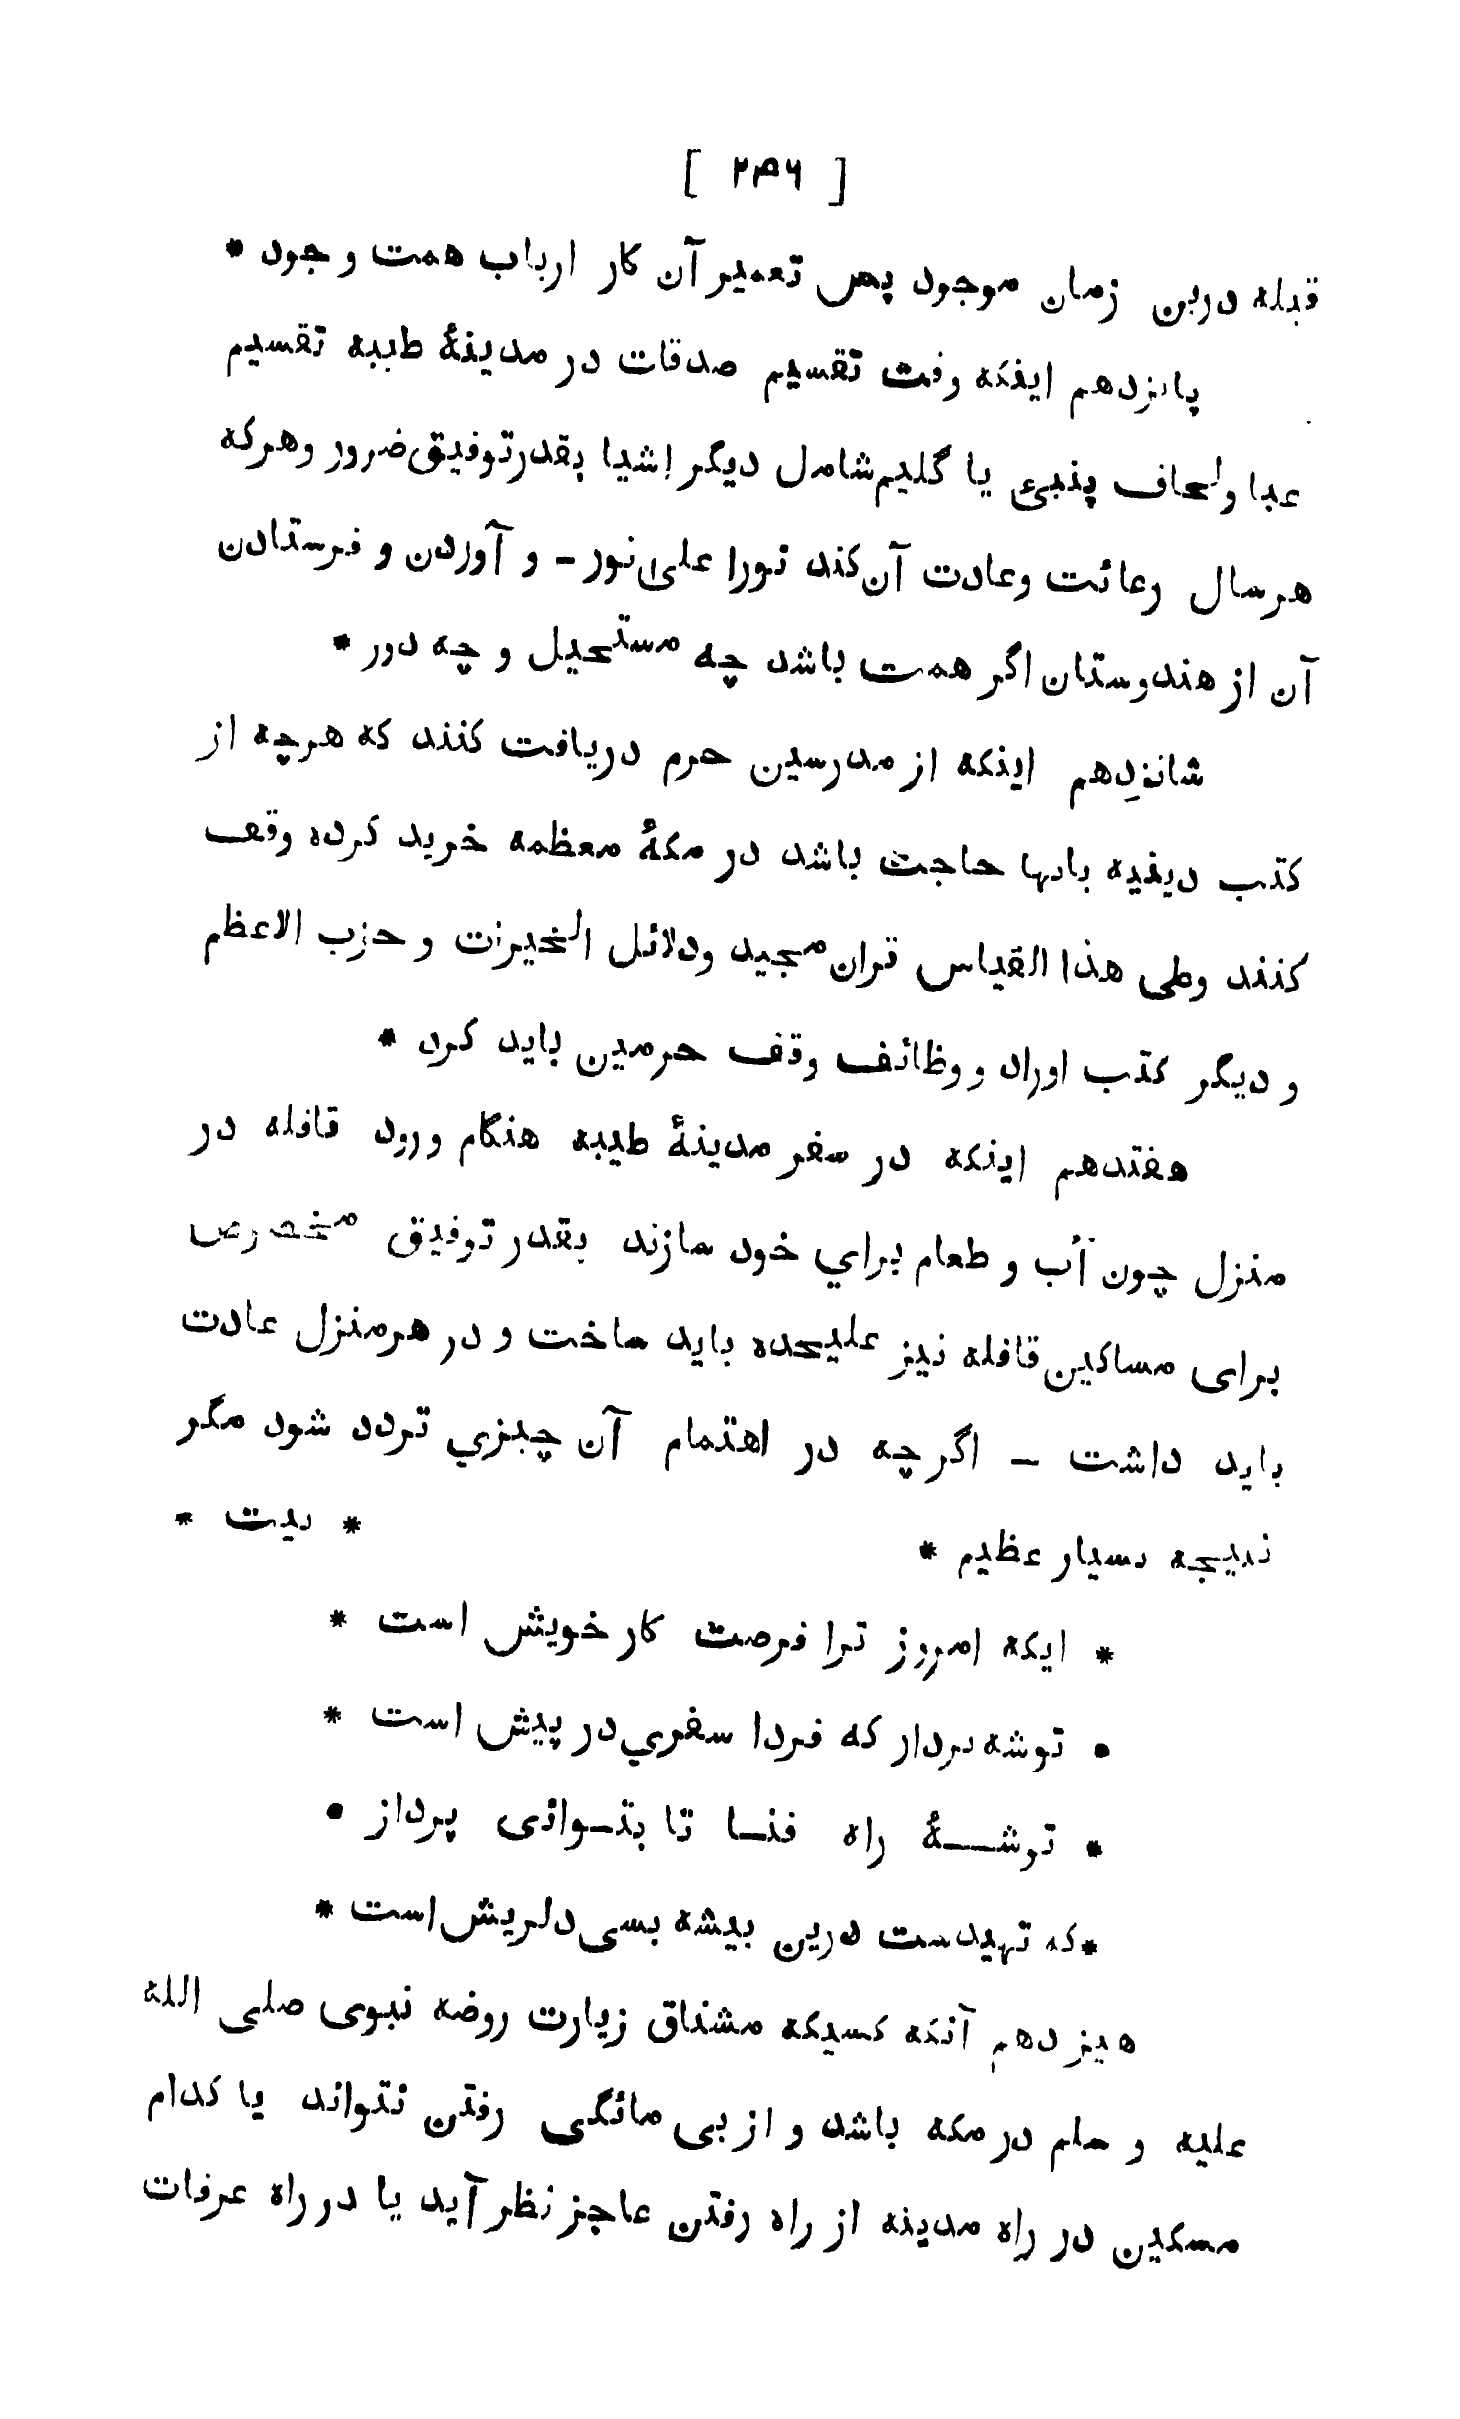 [ ۲۴۶ ]
قبله درین زمان موجود پس تعمیر آن کار ارباب همت و جود *
پانزدهم اینکه وقت تقسیم صدقات در مدینهٔ طیبه تقسیم
عبا ولحاف پنبئ یا گلیم شامل دیگر اشیا بقدر توفیق ضرور وهرکه
هرسال رعائت وعادت آن کند نورا علی نور - و آوردن و فرستادن
آن از هندوستان اگر همت باشد چه مستحیل و چه دور *
شانزدهم اینکه از مدرسین حرم دریافت کنند که هرچه از
کتب دینیه بانها حاجت باشد در مکهٔ معظمه خرید کرده وقف
کنند وعلی هذا القیاس قران مجید ودلائل الخیرات و حزب الاعظم
و دیگر کتب اوراد و وظائف وقف حرمین باید کرد *
هفتدهم اینکه در سفر مدینهٔ طیبه هنگام ورود قافله در
منزل چون آب و طعام براي خود سازند بقدر توفیق مخصوص
برای مساکین قافله نیز علیحده باید ساخت و در هرمنزل عادت
باید داشت - اگرچه در اهتمام آن چیزي تردد شود مگر
نتیجه بسیار عظیم * * بیت *
* ایکه امروز ترا فرصت کار خویش است *
* توشه بردار که فردا سفري در پیش است *
* توشــهٔ راه فنــا تا بتــوانی پرداز *
* که تهیدست درین بیشه بسی دلریش است *
هیزدهم آنکه کسیکه مشتاق زیارت روضه نبوی صلی الله
علیه و سلم در مکه باشد و از بی مائگی رفتن نتواند یا کدام
مسکین در راه مدینه از راه رفتن عاجز نظر آید یا در راه عرفات